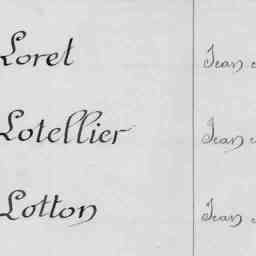 Loret Jean
Lotellier Jean
Lotton Jean